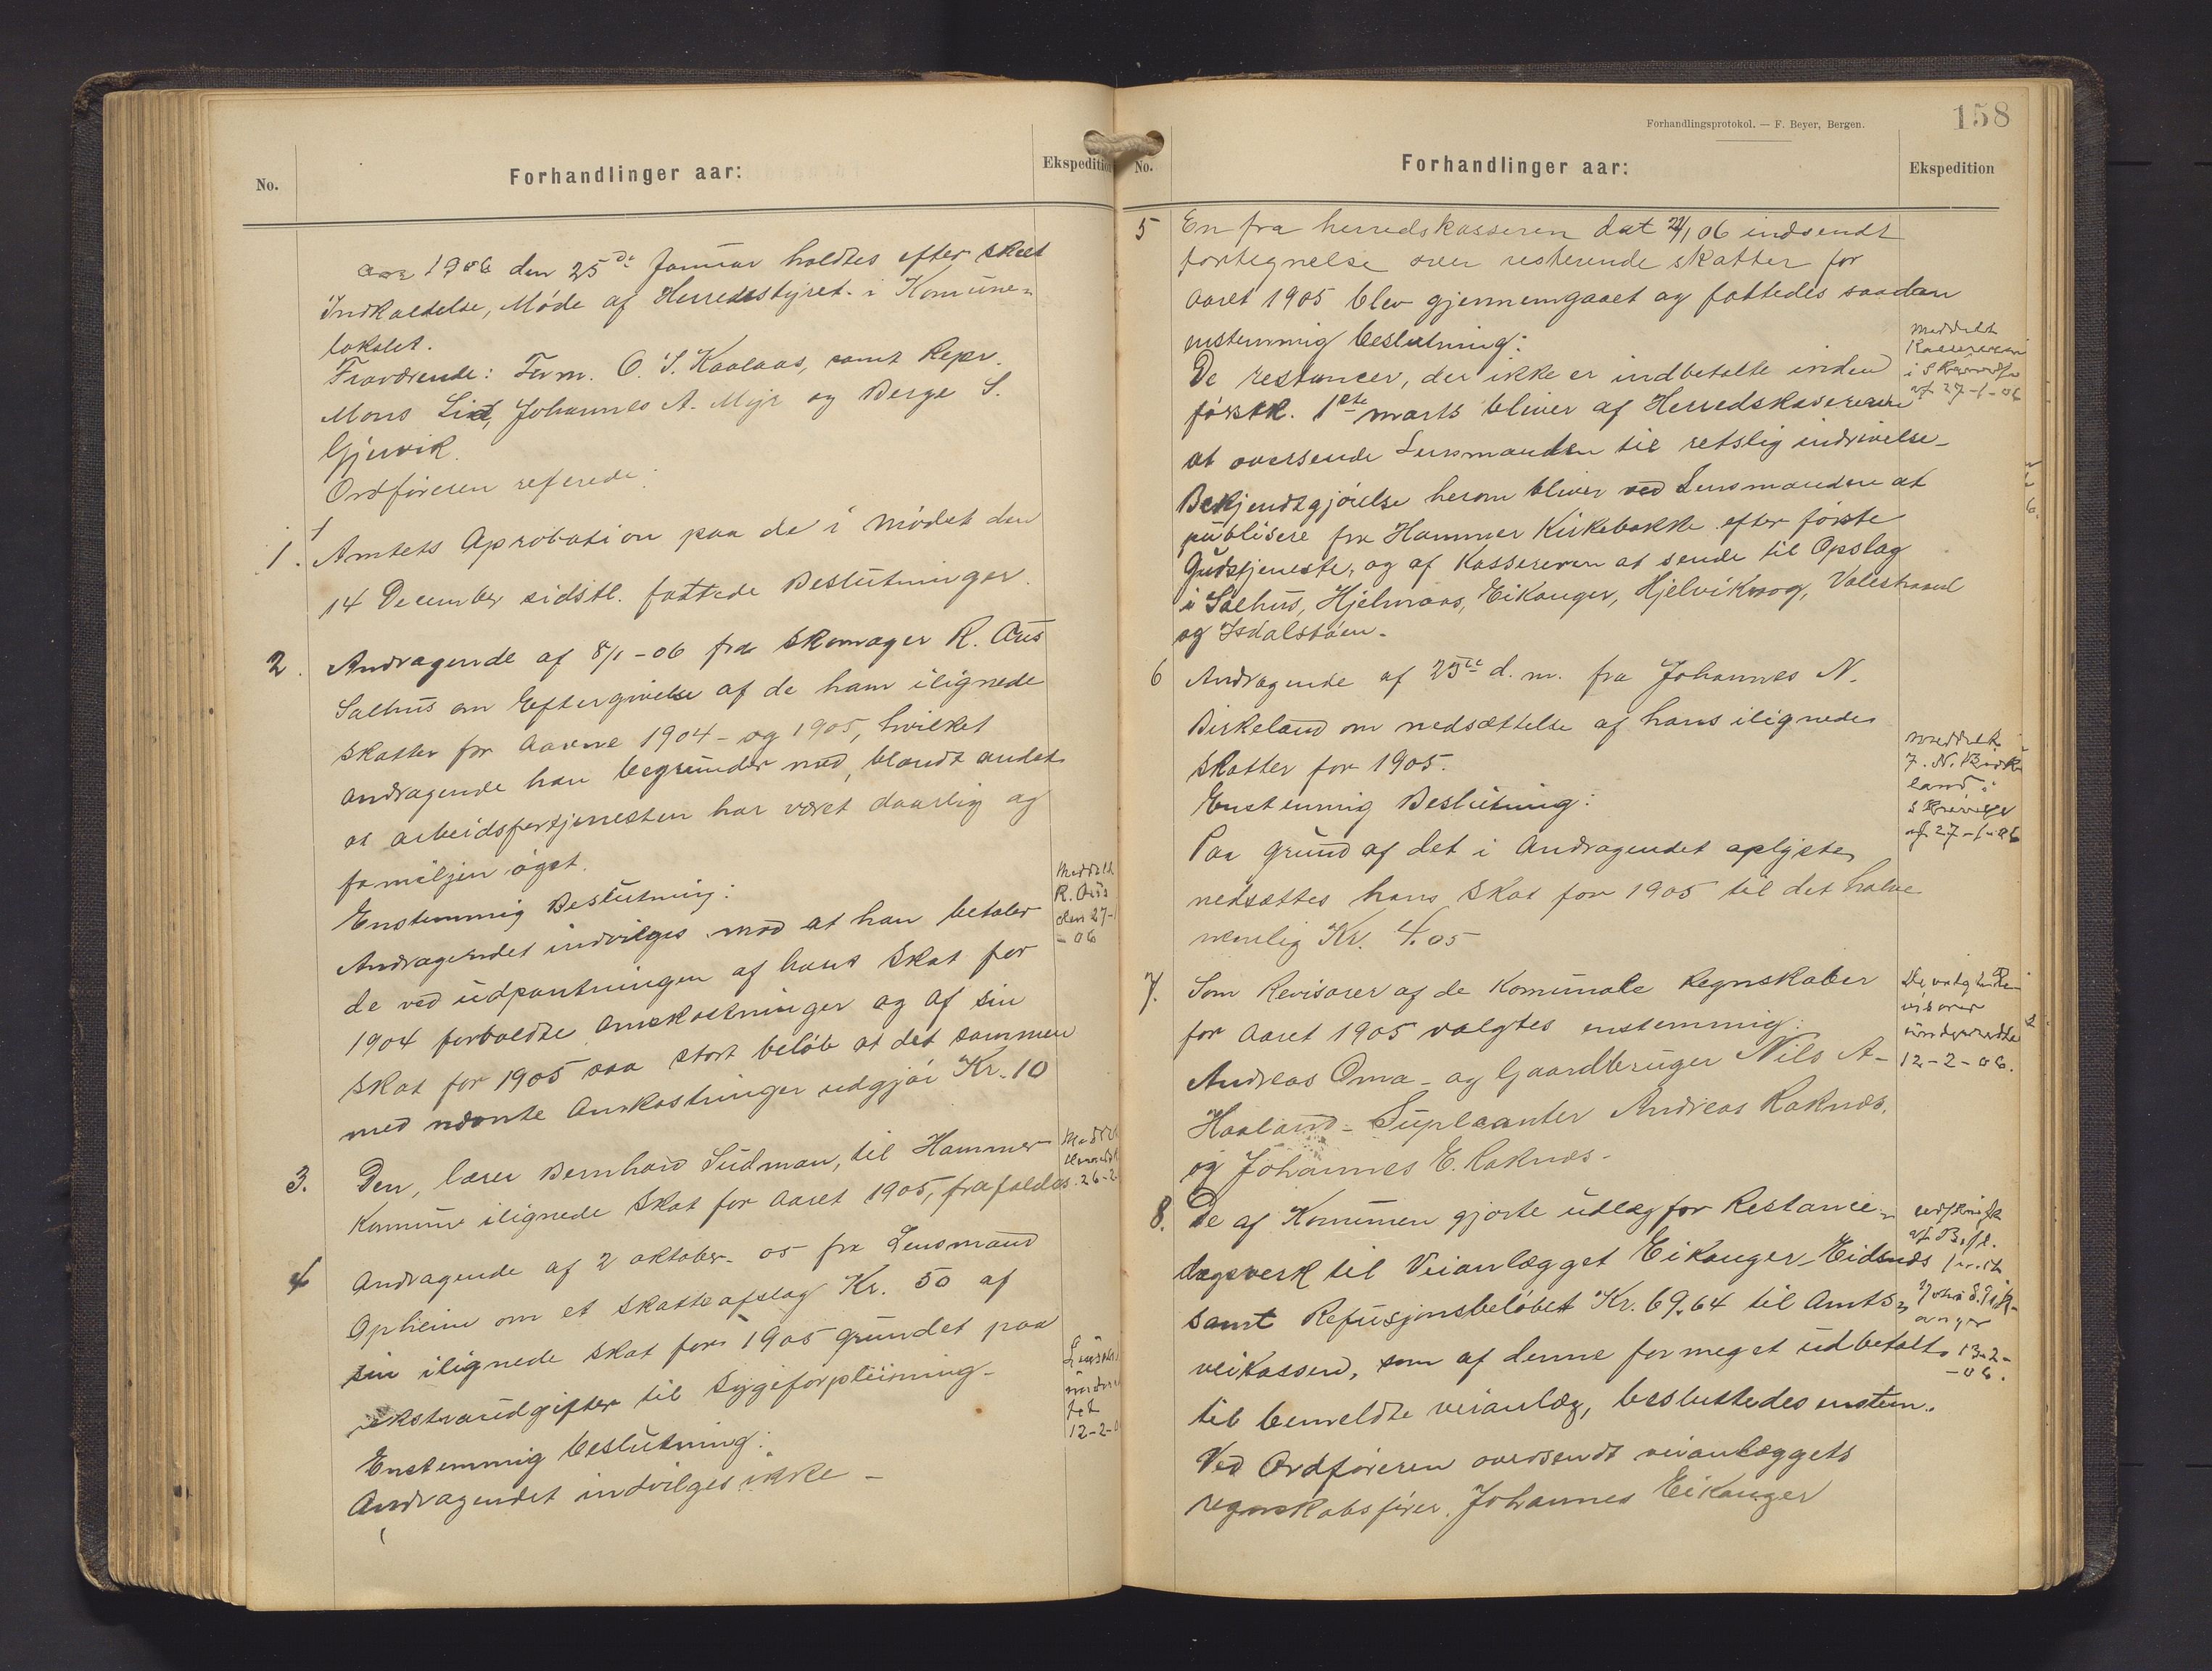 No.
Forhandlinger aar:
Ekspedition
Aar 1906 den 25de Januar holdtes efter skeet
Indkaldelse, Møde af Herredsstyret i Komune-
lokalet.
Fraværende: Form. O. S. Kaalaas, samt Repr.
Mons Lid, Johannes A. Myr og Berge S.
Gjervik.
Ordføreren referede:
1. Amtets Aprobation paa de i Mødet den
14 December sidstl. fattede Beslutninger.
2. Andragende af 8/1-06 fra Skomager R. Aus
Salhus om Eftergivelse af de ham ilignede
skatter for Aarene 1904- og 1905, hvilket
andragende han begrunder med, blandt andet
at arbeidsfortjenesten har været daarlig og
familjen øget.
Enstemmig Beslutning:
Andragendet indvilges mod at han betaler
de ved udpantningen af hans Skat for
1904 forvoldte Omkostninger og af sin
Skat for 1905 saa stort beløb at det sammen
med nævnte Omkostninger udgjør Kr. 10
Meddelt
R. Aus
den 27-1
-06
3. Den, lærer Bernhard Sudman, til Hammer
Komune ilignede Skat for Aaret 1905, frafaldes.
26-2
4 Andragende af 2 oktober-05 fra Lensmand
Opheim om et skatteafslag Kr. 50 af
sin ilignede skat for 1905 grundet paa
ekstraudgifter til Sygeforpleining-
Enstemmig beslutning:
Andragendet indvilges ikke -
12-2-0
158
Forhandlingsprotokol. — F. Beyer, Bergen.
No.
Forhandlinger aar:
Ekspedition
5 En fra herredskasseren dat 24/1 06 indsendt
fortegnelse over resterende skatter for
Aaret 1905 blev gjennemgaaet og fattedes saadan
enstemmig beslutning:
De restancer, der ikke er indbetalte inden
førstk. 1ste marts bliver af Herredskassereren
at oversende Lensmanden til retslig inddrivelse-
Bekjendtgjørelse herom bliver ved Lensmanden at
publisere fra Hammer Kirkebakke efter første
Gudstjeneste, og af Kassereren at sende til Opslag
i Salhus, Hjelmaas, Eikanger, Hjelvikvog, Valestrand
og Isdalstøen-
Meddelt
Kassereren
i Skrivelse
af 27-1-06
6 Andragende af 25de d. m. fra Johannes N.
Birkeland om nedsættelse af hans ilignede
Skatter for 1905.
Enstemmig Beslutning:
Paa grund af det i Andragendet oplyste,
nedsættes hans Skat for 1905 til det halve
nemlig Kr. 4.05
meddelt
J. N. Birke
land i
Skrivelse
af 27-1-06
7. Som Revisorer af de Komunale Regnskaber
for Aaret 1905 valgtes enstemmig:
Andreas Oma- og Gaardbruger Nils A-
Haaland- Supleanter Andreas Raknæs.
og Johannes E. Raknæs-
De valgte Re-
visorer
underrettet
12-2-06.
8. De af Komunen gjorte udlæg for Restance-
dagsverk til Veianlægget Eikanger-Eidsnæs
samt Refusjonsbeløbet Kr. 69.64 til Amts-
veikassen, som af denne formeget udbetalt
til bemeldte veianlæg, besluttedes enstem.
Ved Ordføreren oversendt veianlæggets
regnskabsfører, Johannes Eikanger
udskrift
af Besl.
Johs. Eik-
anger
13-2-
-06.